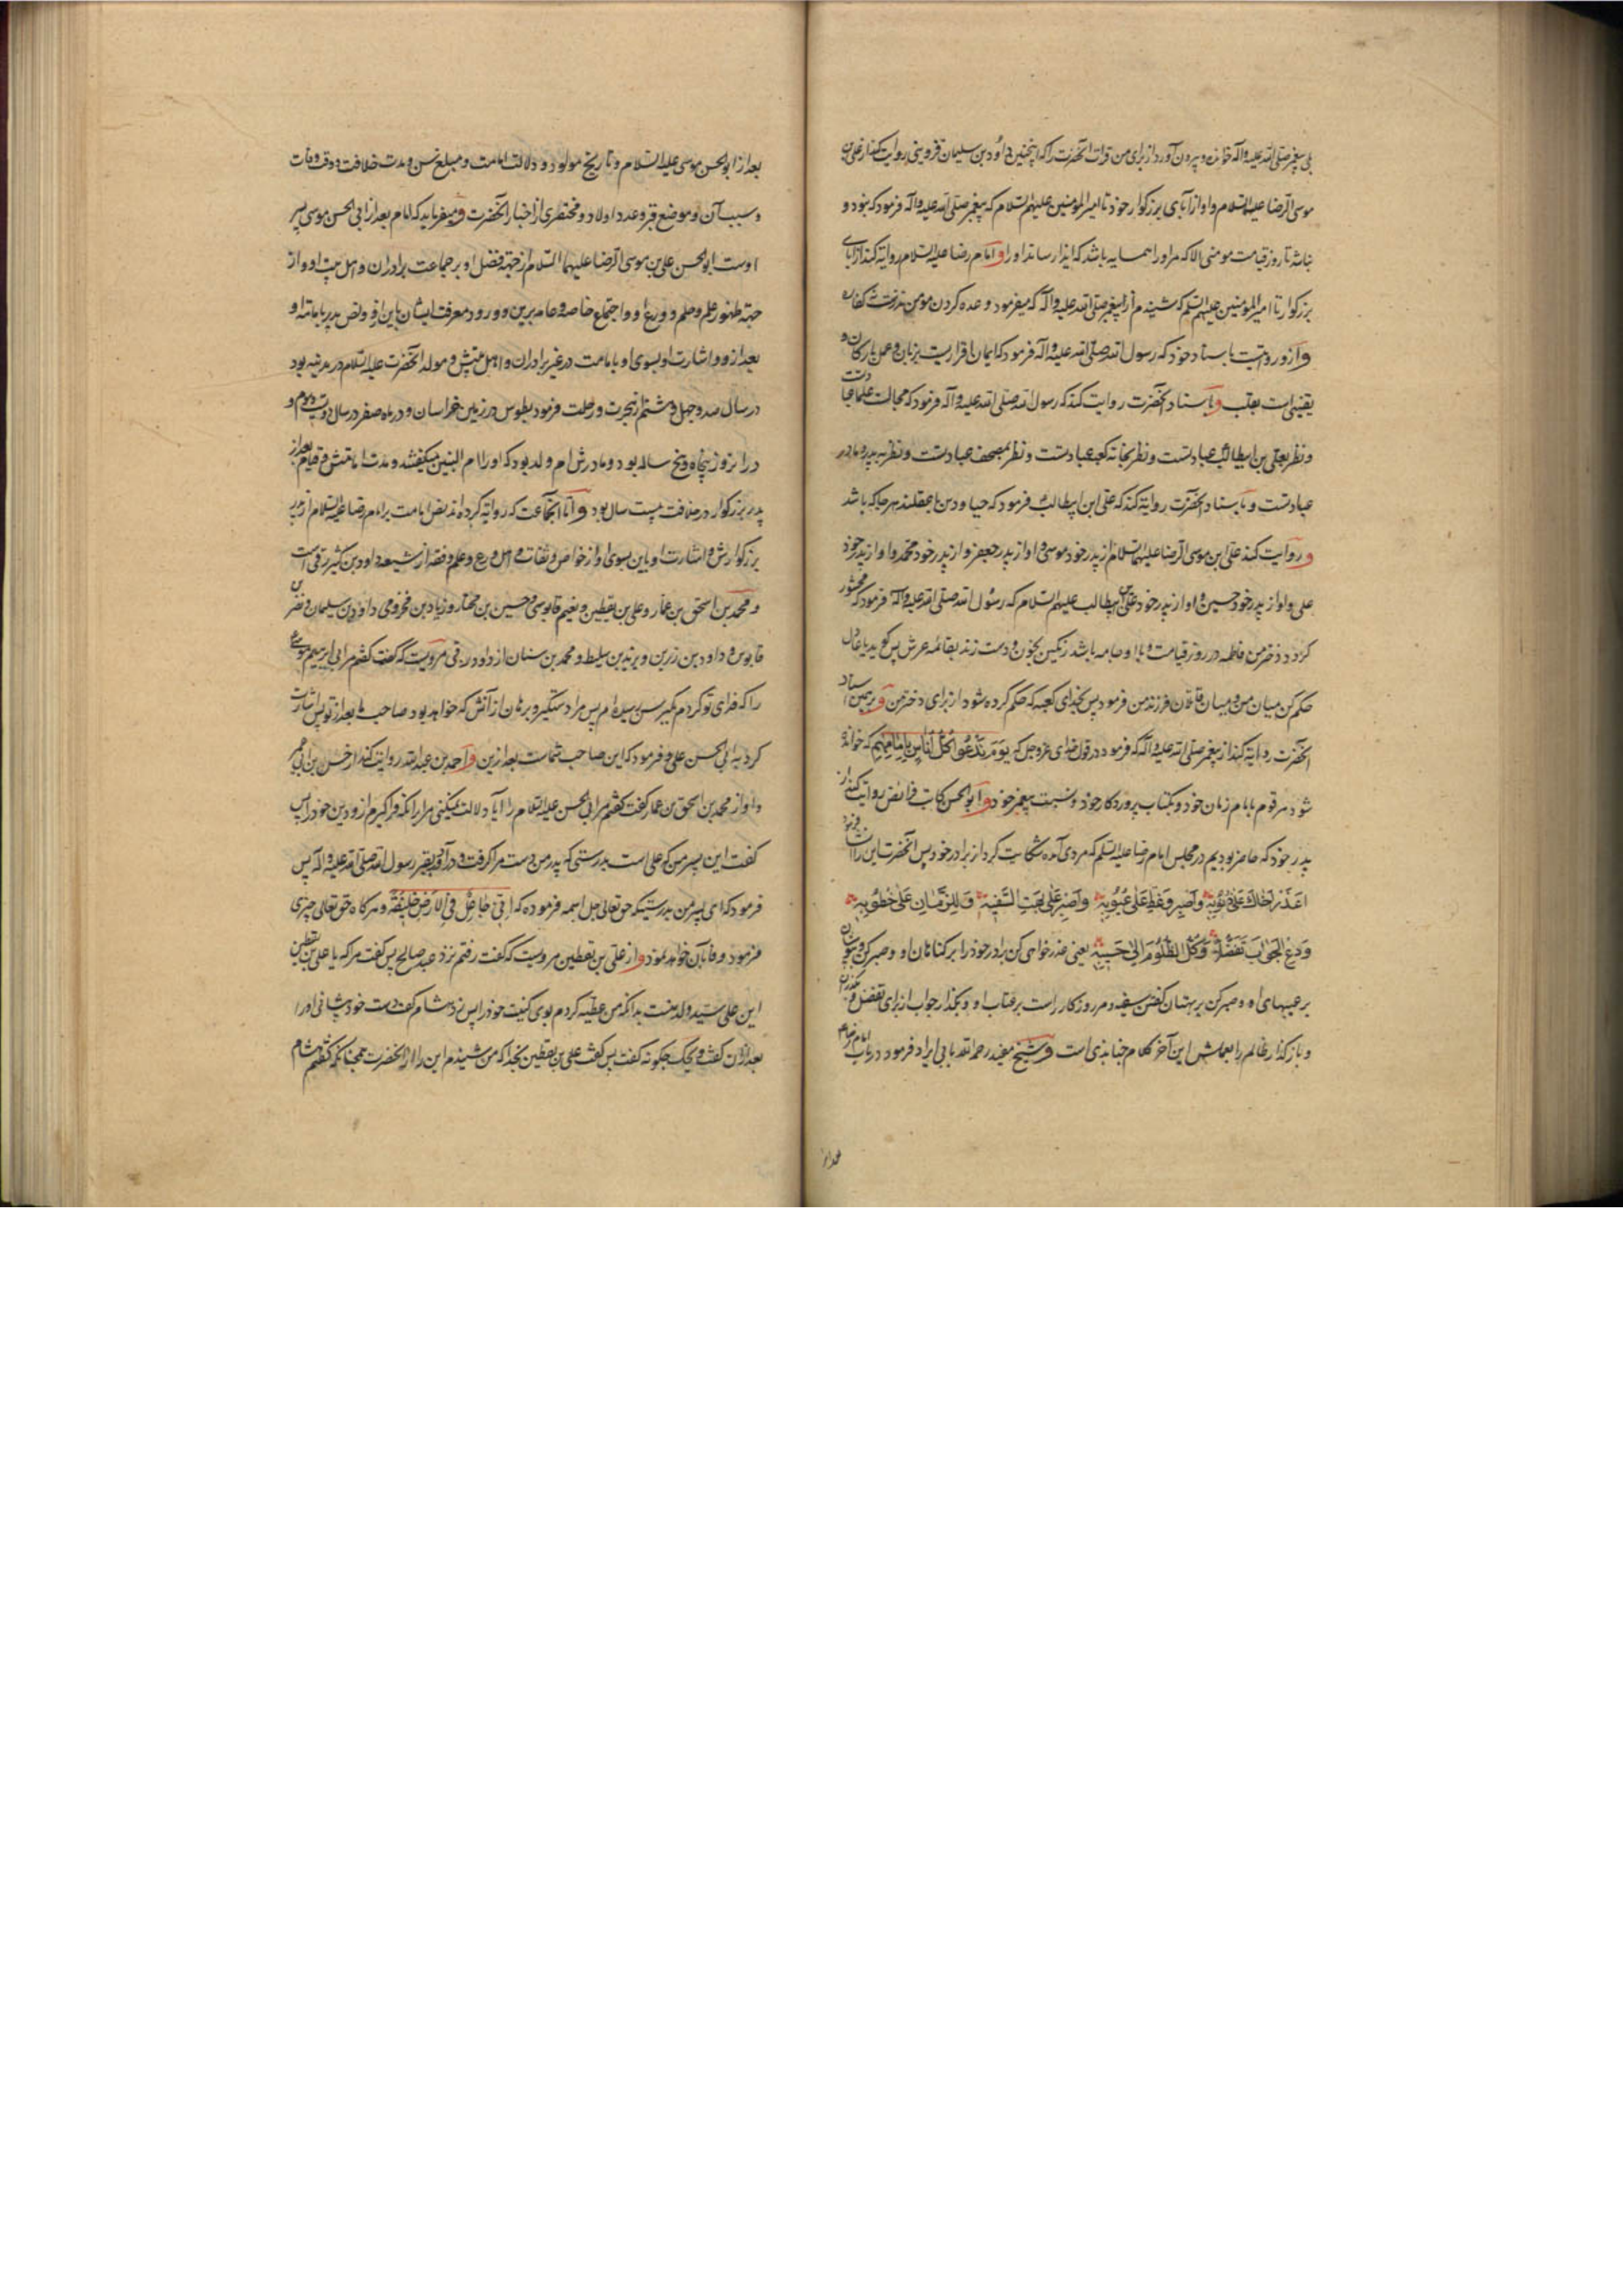 بلی پیغمبر صلی الله علیه و آله خوانده و بیرون آورد از برای من قرات آنحضرت را که اینچنین داود بن سلیمان قزوینی روایت کند از علی بن
موسی الرضا علیه السلام و او از آبای بزرگوار خود تا امیر المومنین علیهم السلام که پیغمبر صلی الله علیه و آله فرمود که نبود و
نباشد تا روز قیامت مومنی الا که مر او را همسایه باشد که ایذا رساند او را و امام رضا علیه السلام روایة کند از آبای
بزرگوار تا امیر المومنین علیهم السلم که شنیدم از پیغمبر صلی الله علیه و آله که میفرمود وعده کردن مومن نذریست کفاره
و ازو مرویست باسناد خود که رسول الله صلی الله علیه و آله فرمود که ایمان اقراریست بزبان و عمل بارکان و
یقینی است بقلب و باسناد آنحضرت روایت کند که رسول الله صلی الله علیه و آله فرمود که مجالست علما عبادتست
و نظر بعلی بن ابیطالب عبادتست و نظر بخانه کعبه عبادتست و نظر بمصحف عبادتست و نظر به پدر و مادر
عبادتست و باسناد آنحضرت روایة کند که علی ابن ابیطالب فرمود که حیا و دین با عقلند هر جا که باشد
و روایت کند علی ابن موسی الرضا علیهما السلام از پدر خود موسی و او از پدر جعفر و از پدر خود محمد و او از پدر خود
علی و او از پدر خود حسین و او از پدر خود علی بن ابیطالب علیهم السلام که رسول الله صلی الله علیه و آله فرمود که محشور
کردد دختر من فاطمه در روز قیامت و با او جامه باشد رنگین بخون و دست زند بقائمه عرش پس گوید یا عادل
حکم کن میان من و میان قاتلان فرزند من فرمود پس بخدای کعبه که حکم کرده شود از برای دختر من و برهمین اسناد
آنحضرت روایة کند از پیغمبر صلی الله علیه و آله که فرمود در قول خدای عز و جل که یوم ندعوا کل اناس بامامهم که خوانده
شود هر قوم بامام زمان خود و بکتاب پروردکار خود و سنت پیغمبر خود و ابو الحسن کاتب فرائض روایت کند از
پدر خود که حاضر بودیم در مجلس امام رضا علیه السلم که مردی آمده شکایت کرد از برادر خود پس آنحضرت این را انشا فرمود
اعذر اخاک علی ذنوبه و اصبر و غط علی عیوبه و اصبر علی بهت السفیه و للزمان علی خطوبه
ودع الجواب تفضلا و کل الظلوم الی حسیبه یعنی عذر خواهی کن برادر خود را بر کناهان او و صبر کن و بپوشان
بر عیبهای او و صبر کن بر بهتان گفتن سفیه و مر روزکار راست بر عتاب او و بکذار جواب از برای تفضل و
و باز کذار ظالم را بعملش این آخر کلام جنابذی است و شیخ مفید رحمه الله بابی ایراد فرمود در باب امام رضا
بعد از ابو الحسن موسی علیه السلام و تاریخ مولود و دلالت امامت و مبلغ سن و مدت خلافت و وقت وفات
و سبب آن و موضع قبر و عدد اولاد و مختصری از اخبار آنحضرت و میفرماید که امام بعد از ابی الحسن موسی پسر
اوست ابو الحسن علی بن موسی الرضا علیهما السلام از جهة فضل او بر جماعت برادران و اهل بیت او و از
جهة ظهور علم و حلم و ورع او و اجتماع خاصه و عامه برین و ورود معرفت ایشان باین ازو و نص پدر بامامة او
بعد ازو و اشارت او بسوی او بامامت در غیر برادران و اهل بیتش و مولد آنحضرت علیه السلام در مدینه بود
در سال صد و چهل و هشتم از هجرت و رحلت فرمود بطوس در زمین خراسان و در ماه صفر در سال دویست و سوم و
در انروز پنجاه و پنج ساله بود و مادرش ام ولد بود که او را ام البنین میگفتند و مدت امامتش و قیام بعد از
پدر بزرگوار در خلافت بیست سال بود و اما انجماعت که روایة کرده اند نص امامت بر امام رضا علیه السلام از پدر
بزرکوارش و اشارت او باین بسوی او از خواص و ثقات و اهل ورع و علم و فقه از شیعه داود بن کثیر رقی است
و محمد بن اسحق بن عمار و علی بن یقطین و نعیم قابوسی و حسین بن مختار و زیاد بن مخزومی و داود بن سلیمان و نصر بن
قابوس و داود بن زربن و یزید بن سلیط و محمد بن سنان از داود رقی مرویست که گفت گفتم مر ابی ابرهیم موسی
را که فدای تو گردم بکبر سن رسیده ام پس مرا دستگیر و برهان از آتش که خواهد بود صاحب ما بعد از تو پس اشارت
کرد به ابی الحسن علی و فرمود که این صاحب شماست بعد ازین و احمد بن عبد الله روایت کند از حسن بن ابی عمیر
و او از محمد بن اسحق بن عمار گفت گفتم مر ابی الحسن علیه السلام را آیا دلالت نمیکنی مرا بر انکه فراگیرم ازو دین خود را پس
گفت این پسر من که علی است بدرستی که پدر من دست مرا گرفت و در آورد بقبر رسول الله صلی الله علیه و آله پس
فرمود که ای پسر من بدرستیکه حق تعالی جل اسمه فرموده که انی جاعل فی الارض خلیفة و هرکاه حق تعالی چیزی
فرمود وفا بآن خواهد نمود و از علی بن یقطین مرویست که گفت رفتم نزد عبد صالح پس گفت مرا که یا علی بن یقطین
این علی سید ولد منست بدانکه من عطیه کردم بوی کنیت خود را پس زد هشام کف دست خود پیشانی او را
بعد ازان گفت ویحک چکونه گفت پس گفت علی بن یقطین بخدا که من شنیدم این را از آنحضرت همچنانکه گفتم هشام